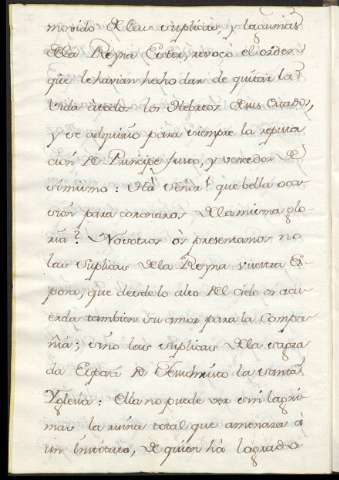 movido de las suplicas, y lagrimas
de la Reyna Ester, revocó el orden
que le havian hecho dar de quitar la
vida á todos los Hebreos de sus Estados,
y se adquirio para siempre la reputa
cion de Principe Justo, y vencedor de
si mismo: Ha Señor! que bella oca
sion para coronaros de la misma glo
ria? Nosotros ôs presentamos no
las suplicas de la Reyna vuestra Es
posa, que desde lo alto del cielo ôs acu
erda tambien su amor para la Compa
ñia; sino las suplicas de la sagra
da Esposa de Jesuchristo la Santa
Yglesia: Ella no puede ver sin lagri
mas la ruina total que amenaza á
un Instituto, de quien há logrado